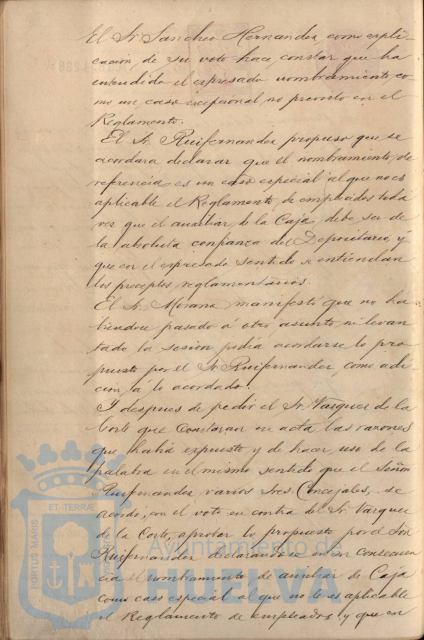 El Sr. Sanchez Hernandez como expli-
cación de su voto hace constar que ha
entendido el expresado nombramiento co-
mo un caso excepcional no previsto en el
Reglamento.
El Sr. Ruifernandez propuso que se
acordara declarar que el nombramiento de
referencia es un caso especial al que no es
aplicable el Reglamento de empleados toda
vez que el auxiliar de la Caja, debe ser de
la absoluta confianza del Depositario, y
que en el expresado sentido se entiendan
los preceptos reglamentarios.
El Sr. Morana manifestó que no ha-
biendose pasado á otro asunto ni levan
tado la sesion podia acordarse lo pro-
puesto por el Sr. Ruifernandez, como adi-
cion á lo acordado.
Y despues de pedir el Sr. Vazquez de la
Corte que constaran en acta las razones
que habia expuesto y de hacer uso de la
palabra en el mismo sentido que el Señor
Ruifernandez varios Sres. Concejales, se
acordó, con el voto en contra del Sr. Vazquez
de la Corte, aprobar lo propuesto por el Sor.
Ruifernandez declarandose en su consecuen
cia el nombramiento de auxiliar de Caja
como caso especial al que no le es aplicable
el Reglamento de empleados y que en
PORTUS MARIS ET TERRÆ
Ayuntamiento de
HUELVA